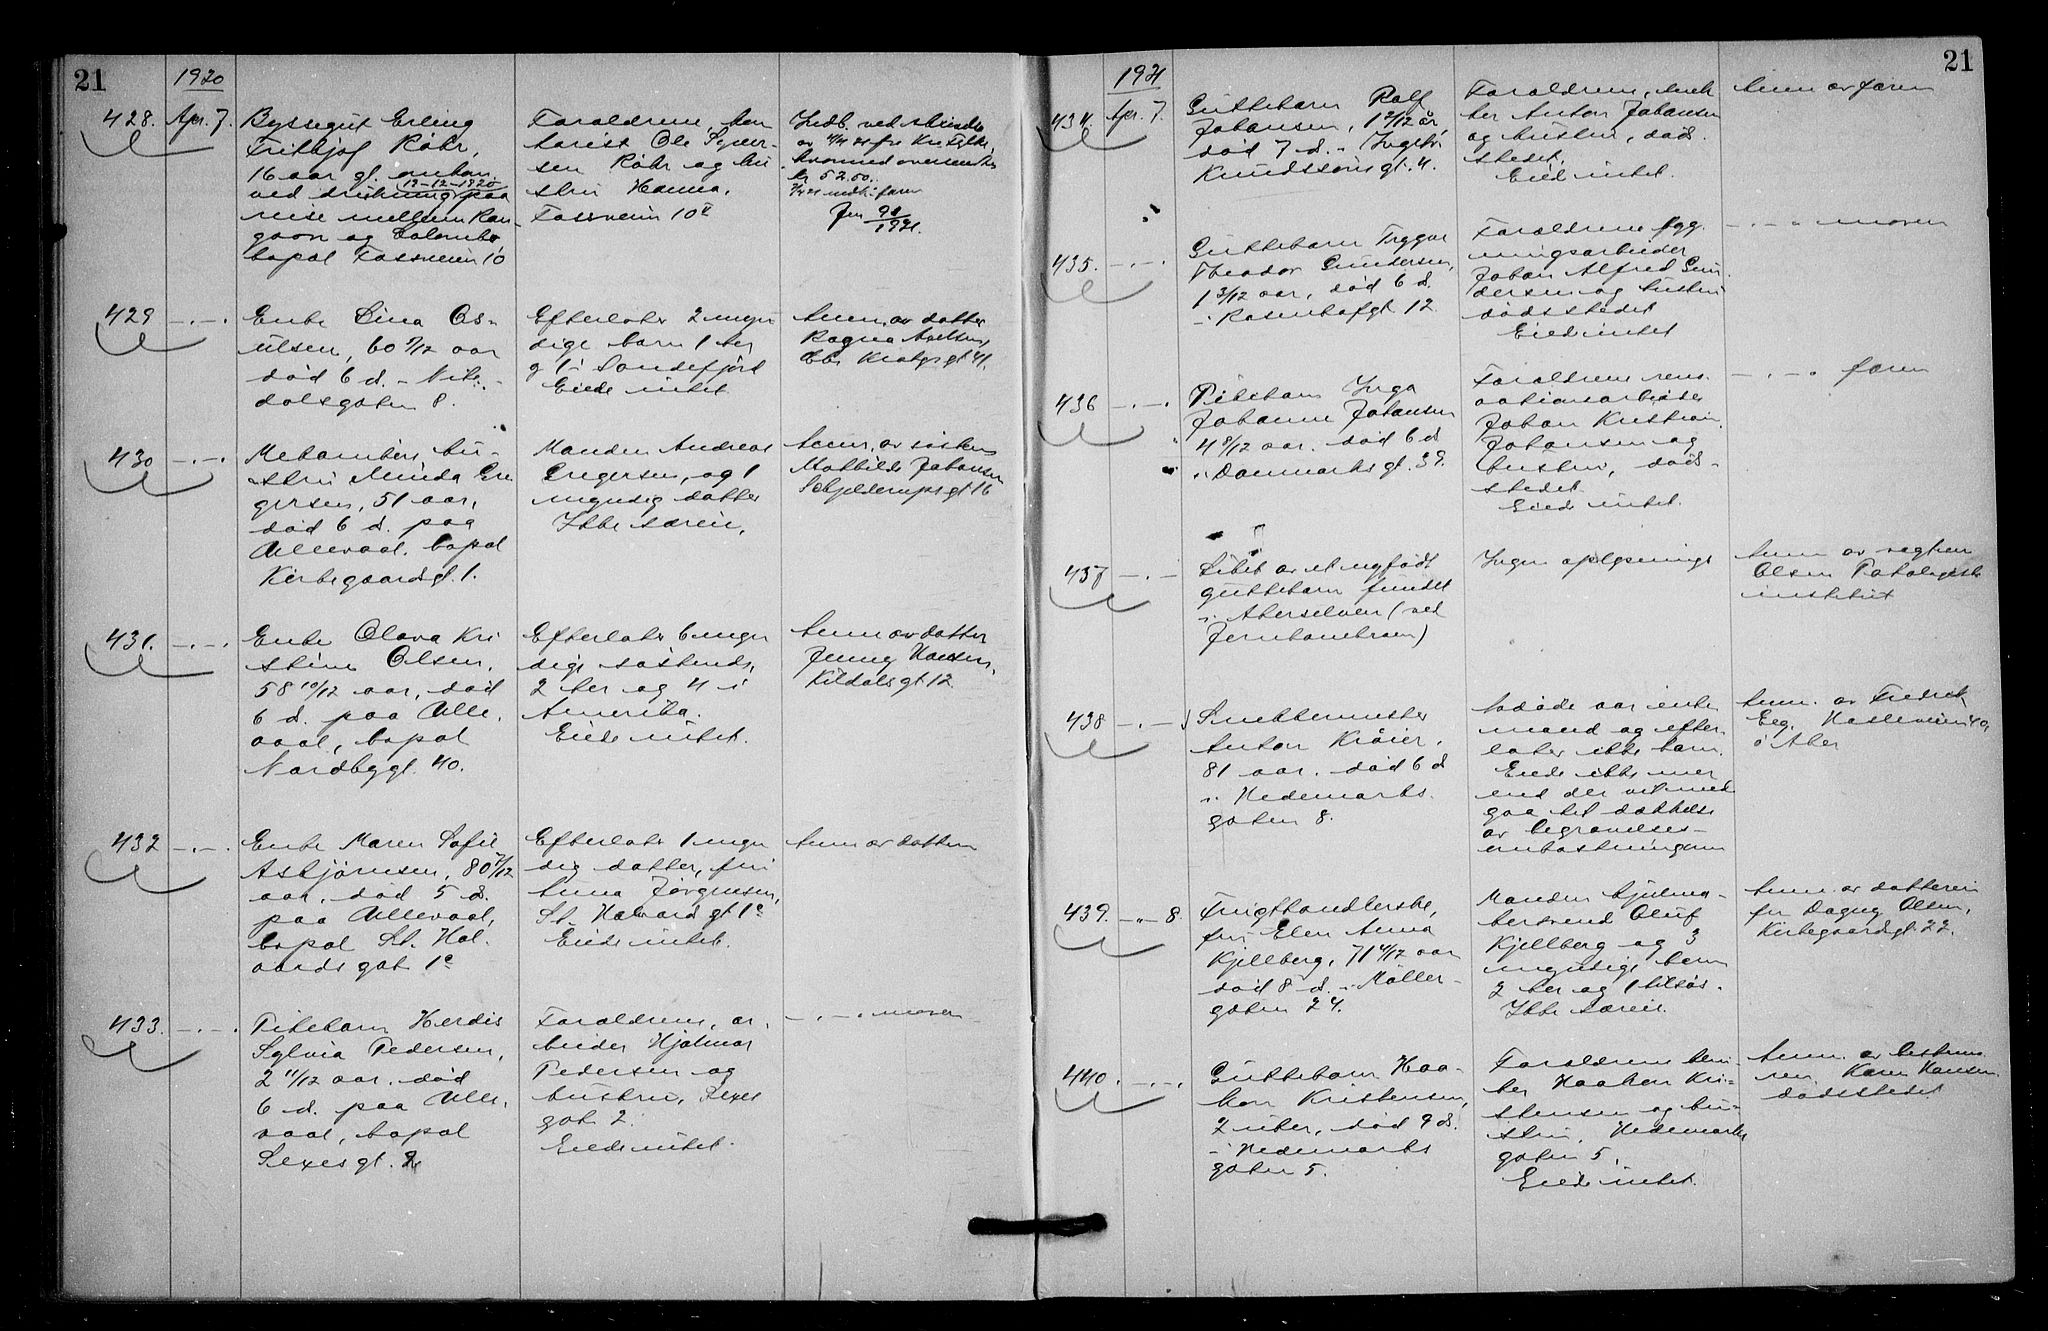 21
1920
428. Apr. 7.
Byssegut Erling
Frithjof Röhr,
16 aar gl. omkom
ved drukning 19-12-1920 paa
reise mellem Ran-
goon og Colombo
bopæl Fossveien 10
Forældrene,
Ole Syver-
sen Röhr og hu-
stru Hanna,
Fossveien 10
Indb. ved skrivelse
av fra
hvormed oversendtes
kr 52.00.
faren
Jfr. 98/1921.
429 -.-.
Enke Lina Os-
ulsen, 60 7/12 aar
död 6 d. i Nite-
dalsgaten 8.
Efterlater 2 myn
dige barn 1 her
og 1 i Sandefjord
Eiede intet
Anm. av datter
Ragna Axelsen,
Ebb. Kraghsgt 41.
430 -.-.
hu-
stru Minda Gre
gersen, 51 aar,
död 6 d. paa
Ullevaal, bopæl
Kirkegaardsgt. 1.
Manden Andreas
Gregersen, og 1
myndig datter
Ikke særeie,
Anm. av søsteren
Mathilde Johansen
Schjelderupsgt 16
431. -.-.
Enke Olava Kri
stine Olsen,
58 10/12 aar, död
6 d. paa Ulle-
vaal, bopæl
Nordbygt. 40.
Efterlater 6 myn
dige söskende,
2 her og 4 i
Amerika.
Eiede intet.
Anm av datter
Jenny Hansen,
Kildalsgt 12
432 -.-.
Enke Maren Sofie
Asbjörnsen, 80 7/12
aar, död 5 d.
paa Ullevaal,
bopæl St. Hal-
vards gate 1c
Efterlater 1 myn
dig datter, fru
Anna Jörgensen,
St. Halvards gt 1c
Eiede intet.
Anm av datteren
433. -.-.
Pikebarn Herdis
Sylvia Pedersen,
2 11/12 aar. död
6 d. paa Ulle-
vaal, bopæl
Sexesgt. 2
Forældrene, ar-
beider Hjalmar
Pedersen og
hustru, Sexes
gate 2.
Eiede intet.
-.-. moren
21
1921
434. Apr. 7.
Guttebarn Rolf
Johansen, 1 2/12 år
död 7 d. i Ingebr.
Knudssønsgt. 4.
Forældrene,
Anton Johansen
og hustru, död-
stedet.
Eied intet.
Anm av faren
435. -.-.
Guttebarn Trygve
Theodor Gundersen,
1 3/12 aar, död 6 d.
i Rosenhofgt 12
Forældrene byg-
ningsarbeider
Johan Alfred Gun-
dersen og hustru
dödsstedet
Eied intet
-.-. moren
436 -.-.
Pikebarn Inga
Johanne Johansen
4 8/12 aar. död 6 d
i Danmarksgt. 39.
Forældrene reno-
vationsarbeider
Johan Kristian
Johansen og
hustru, död-
stedet.
Eied intet.
-.-. faren
437 -.-.
Liket av et nyfödt
guttebarn fundet
i Akerselven (ved
Jernbanebroen)
Ingen oplysninger
Anm av vagtm
Olsen Patologisk
institut
438 -.-.
Snekkermester
Anton Kröier,
81 aar. död 6 d
i Hedemarks-
gaten 8.
Avdöde var enke-
mand og efter-
later ikke barn.
Eiede ikke mer
end der vil med-
gaa til dækkelse
av begravelses-
omkostningerne
Anm. av Fredrik
Eeg, Hasleveien 40,
Ö Aker
439. -.- 8.
Frugthandlerske,
fru Elen Anna
Kjellberg, 71 4/12 aar
död 8 d. i Möller-
gaten 24.
Manden hjulma-
kersvend Oluf
Kjellberg og 3
myndige barn
2 her og 1 tilsjös.
Ikke særeie.
Anm. av datteren
fru Dagny Olsen,
Kirkegaardsgt. 22.
440. -.-.
Guttebarn Haa-
kon Kristensen,
2 uker, död 7 d.
i Hedemarks
gaten 5.
Forældrene
Haakon Kri-
stensen og hu-
stru, Hedemarks
gaten 5,
Eiede intet.
Anm. av bestemo-
ren Karen Hansen,
dödsstedet